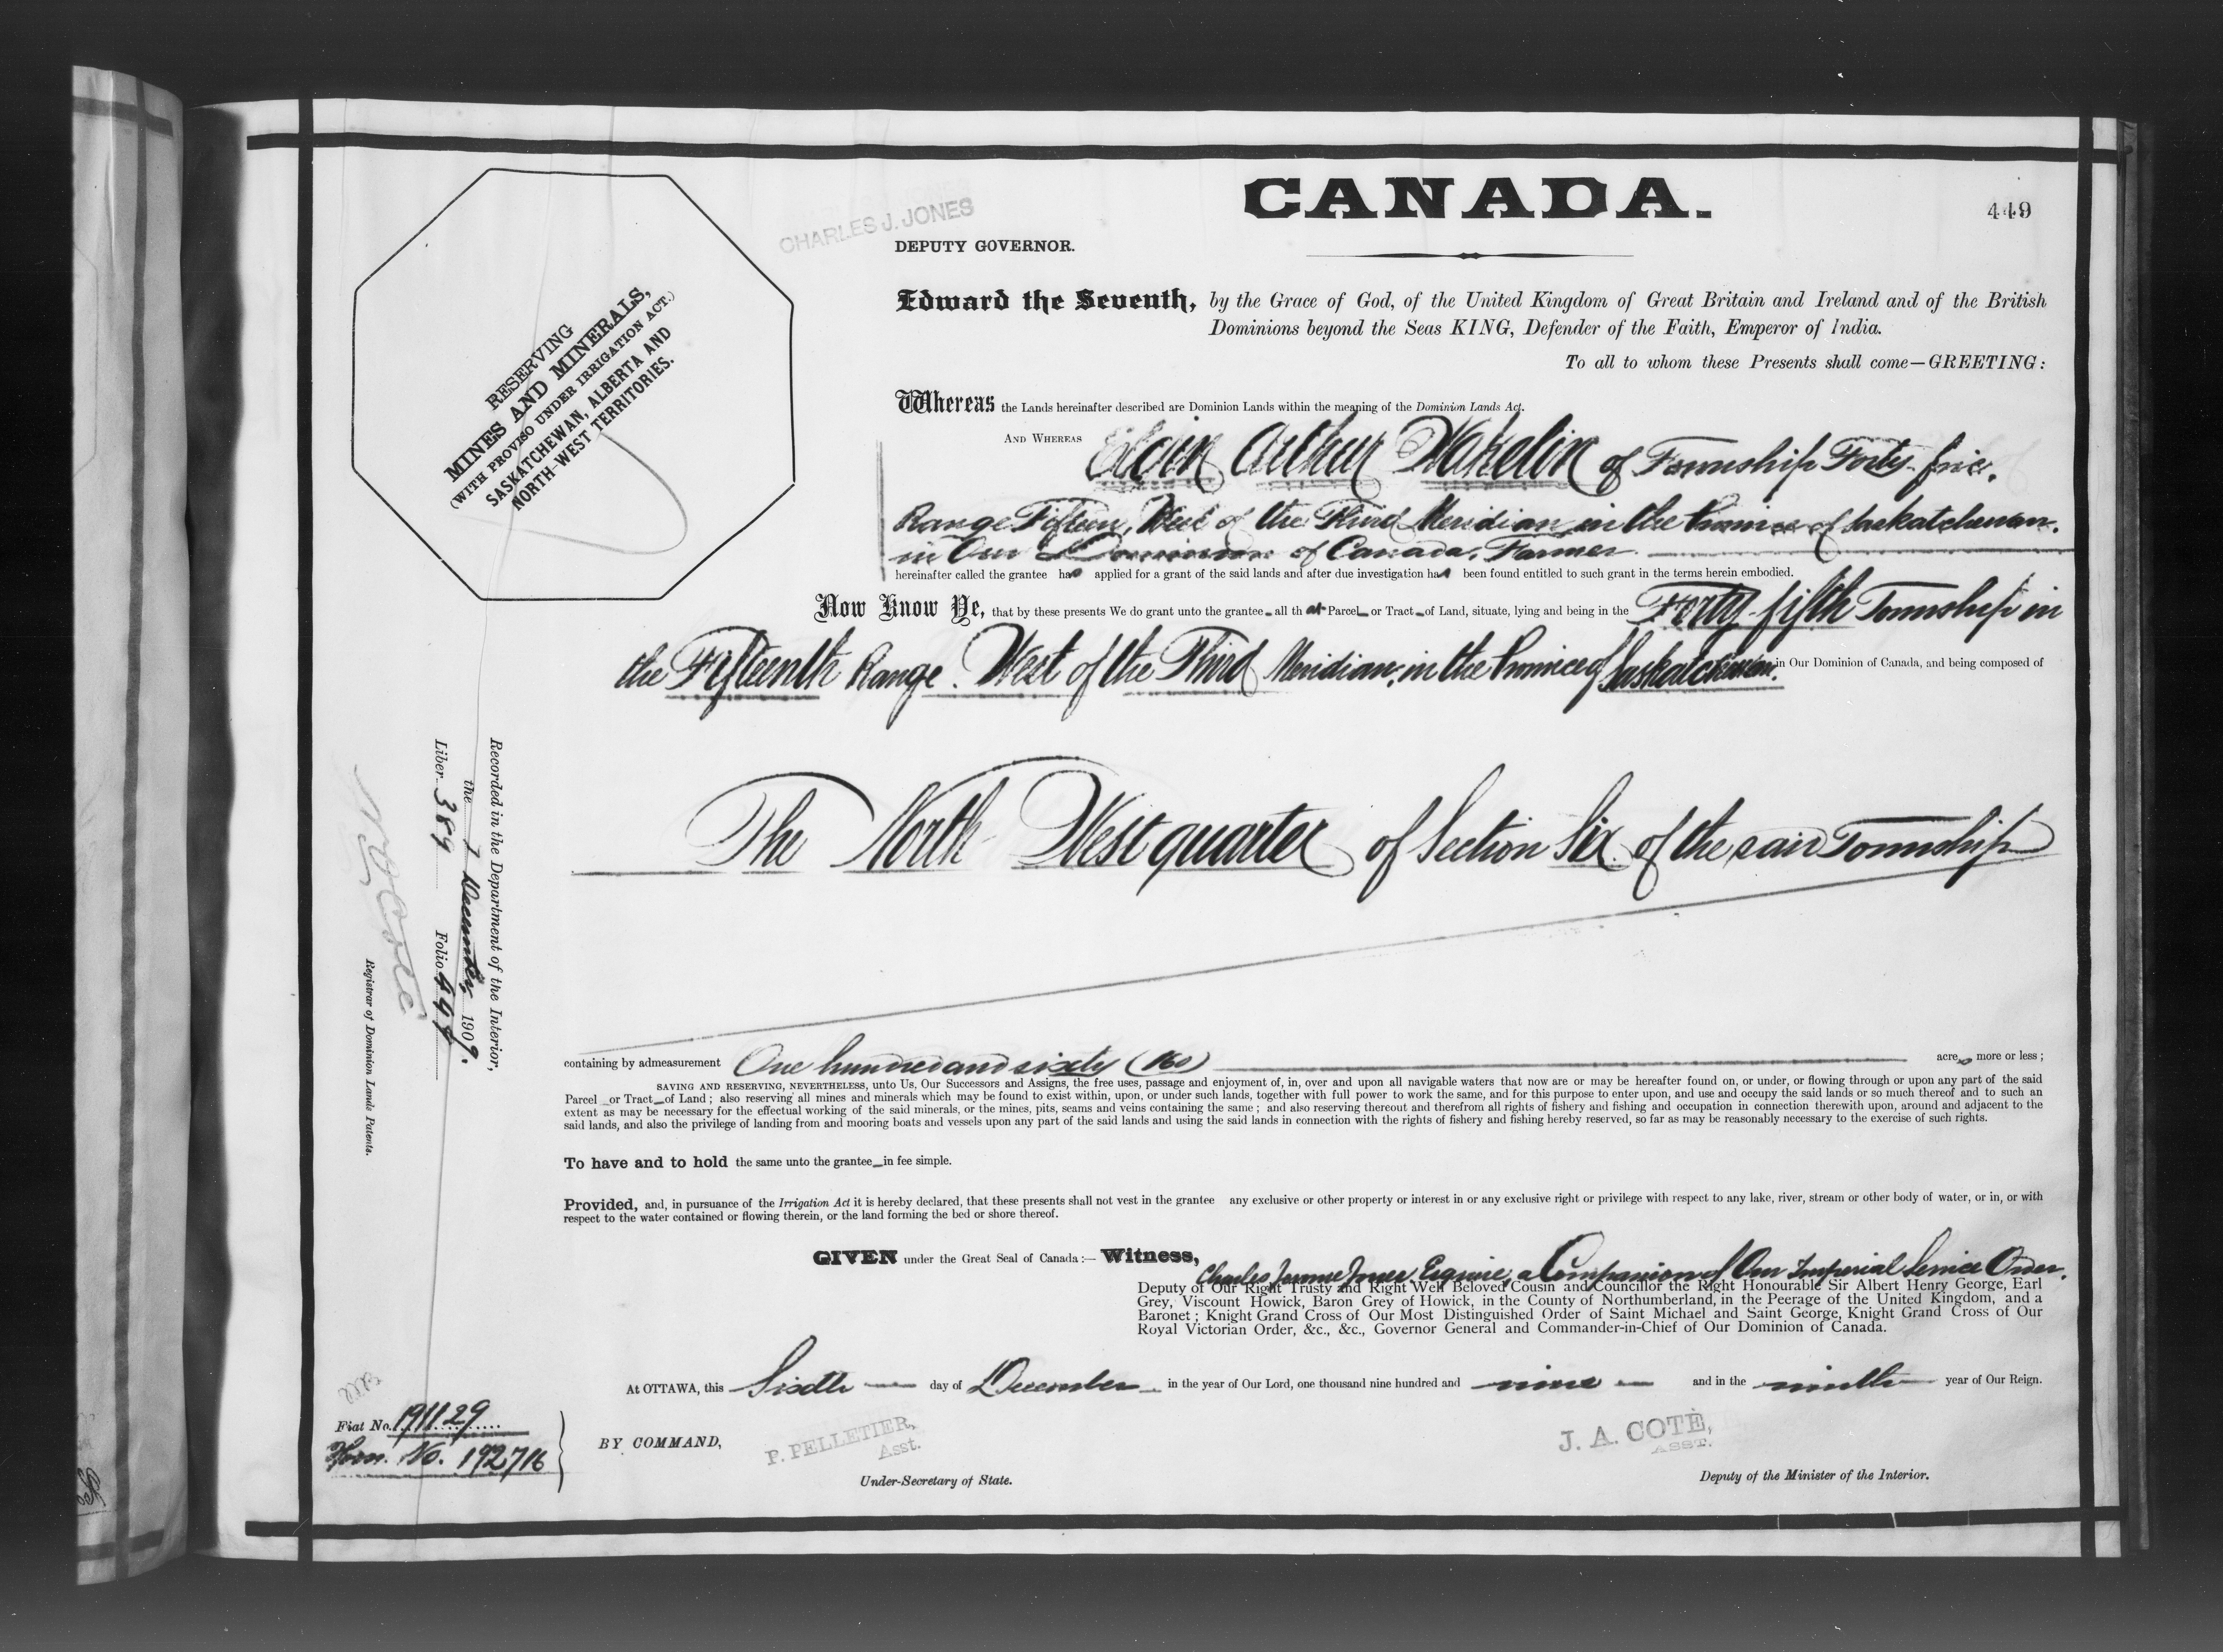 CANADA.
449
CHARLES J. JONES
DEPUTY GOVERNOR.
RESERVING
MINES AND MINERALS,
(WITH PROVISO UNDER IRRIGATION ACT.)
SASKATCHEWAN, ALBERTA AND
NORTH-WEST TERRITORIES.
Edward the Seventh, by the Grace of God, of the United Kingdom of Great Britain and Ireland and of the British
Dominions beyond the Seas KING, Defender of the Faith, Emperor of India.
To all to whom these Presents shall come—GREETING:
Whereas the Lands hereinafter described are Dominion Lands within the meaning of the Dominion Lands Act.
AND WHEREAS Arthur Wakelin of Township Forty-five,
Range Fifteen, West of the Third Meridian in the Province of Saskatchewan,
in Our Dominion of Canada, Farmer
hereinafter called the grantee has applied for a grant of the said lands and after due investigation has been found entitled to such grant in the terms herein embodied.
Now Know Ye, that by these presents We do grant unto the grantee all that Parcel or Tract of Land, situate, lying and being in the Forty fifth Township in
the Fifteenth Range West of the Third Meridian, in the Province of Saskatchewan, in Our Dominion of Canada, and being composed of
The North West quarter of Section Six of the said Township
containing by admeasurement One hundred and sixty (160) acres more or less;
SAVING AND RESERVING, NEVERTHELESS, unto Us, Our Successors and Assigns, the free uses, passage and enjoyment of, in, over and upon all navigable waters that now are or may be hereafter found on, or under, or flowing through or upon any part of the said
Parcel or Tract of Land; also reserving all mines and minerals which may be found to exist within, upon, or under such lands, together with full power to work the same, and for this purpose to enter upon, and use and occupy the said lands or so much thereof and to such an
extent as may be necessary for the effectual working of the said minerals, or the mines, pits, seams and veins containing the same; and also reserving thereout and therefrom all rights of fishery and fishing and occupation in connection therewith upon, around and adjacent to the
said lands, and also the privilege of landing from and mooring boats and vessels upon any part of the said lands and using the said lands in connection with the rights of fishery and fishing hereby reserved, so far as may be reasonably necessary to the exercise of such rights.
To have and to hold the same unto the grantee in fee simple.
Provided, and, in pursuance of the Irrigation Act it is hereby declared, that these presents shall not vest in the grantee any exclusive or other property or interest in or any exclusive right or privilege with respect to any lake, river, stream or other body of water, or in, or with
respect to the water contained or flowing therein, or the land forming the bed or shore thereof.
GIVEN under the Great Seal of Canada:— Witness, Charles Jerome Jones Esquire, a Companion of Our Imperial Service Order,
Deputy of Our Right Trusty and Right Well Beloved Cousin and Councillor the Right Honourable Sir Albert Henry George, Earl
Grey, Viscount Howick, Baron Grey of Howick, in the County of Northumberland, in the Peerage of the United Kingdom, and a
Baronet; Knight Grand Cross of Our Most Distinguished Order of Saint Michael and Saint George, Knight Grand Cross of Our
Royal Victorian Order, &c., &c., Governor General and Commander-in-Chief of Our Dominion of Canada.
At OTTAWA, this Sixth day of December in the year of Our Lord, one thousand nine hundred and nine and in the ninth year of Our Reign.
BY COMMAND,
P. PELLETIER,
Asst.
Under-Secretary of State.
J. A. COTÉ,
ASST.
Deputy of the Minister of the Interior.
Recorded in the Department of the Interior,
the 7 December, 1909.
Liber 389 Folio 449
Registrar of Dominion Lands Patents.
Fiat No. 191129
Hom. No. 192716